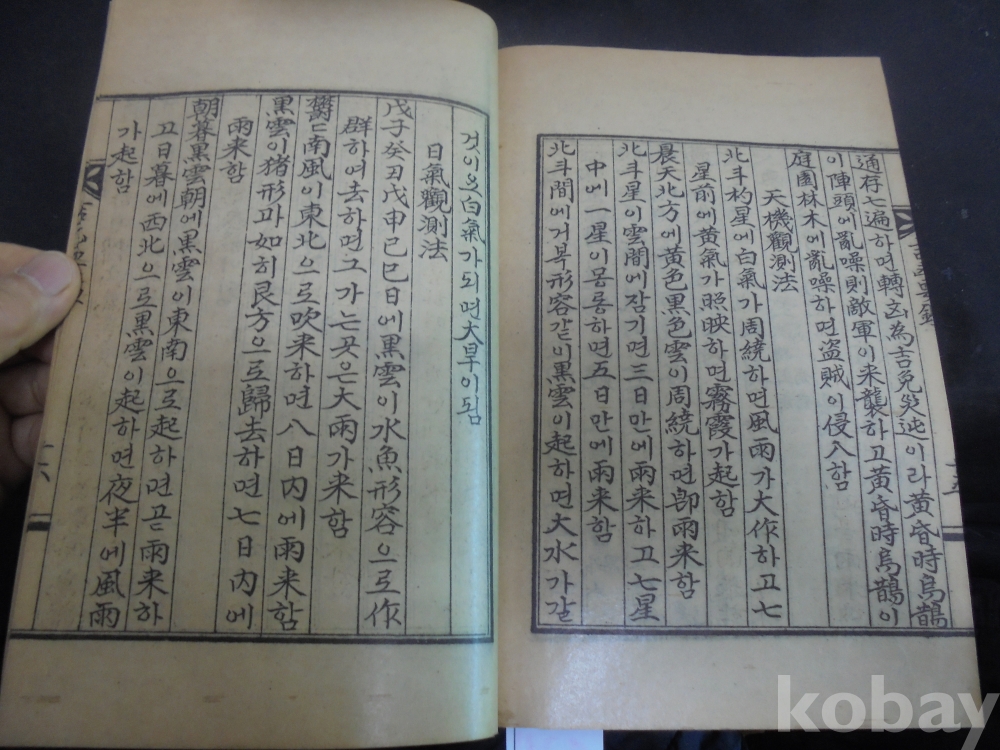 適存七遍하며轉凶為吉免災逃이라黃昏時烏鵲이
이陣頭에亂噪則敵軍이来襲하고黃昏時烏鵲이
庭園林木에亂噪하면盜賊이侵入함
天機觀測法
北斗杓星에白氣가周繞하면風雨가大作하고七
星前에黃氣가照映하면霧霞가起함
晨天北方에黃色黑色雲이周繞하면卽雨来함
北斗星이雲間에잠기면三日만에雨来하고七星
中에一星이몽롱하면五日만에雨来함
北斗間에거북形容갇이黑雲이起하면大水가갈
十五
것이으白氣가되면大旱이됨
日氣觀測法
戊子癸丑戊申己巳日에黑雲이水魚形容으로作
群하여去하면그가는곳은大雨가来함
欝〻南風이東北으로吹来하면八日內에雨来함
黑雲이猪形과如히艮方으로歸去하면七日內에
雨来함
朝暮黑雲朝에黑雲이東南으로起하면곧雨来하
고日暮에西北으로黑雲이起하면夜半에風雨
가起함
十六
kobay